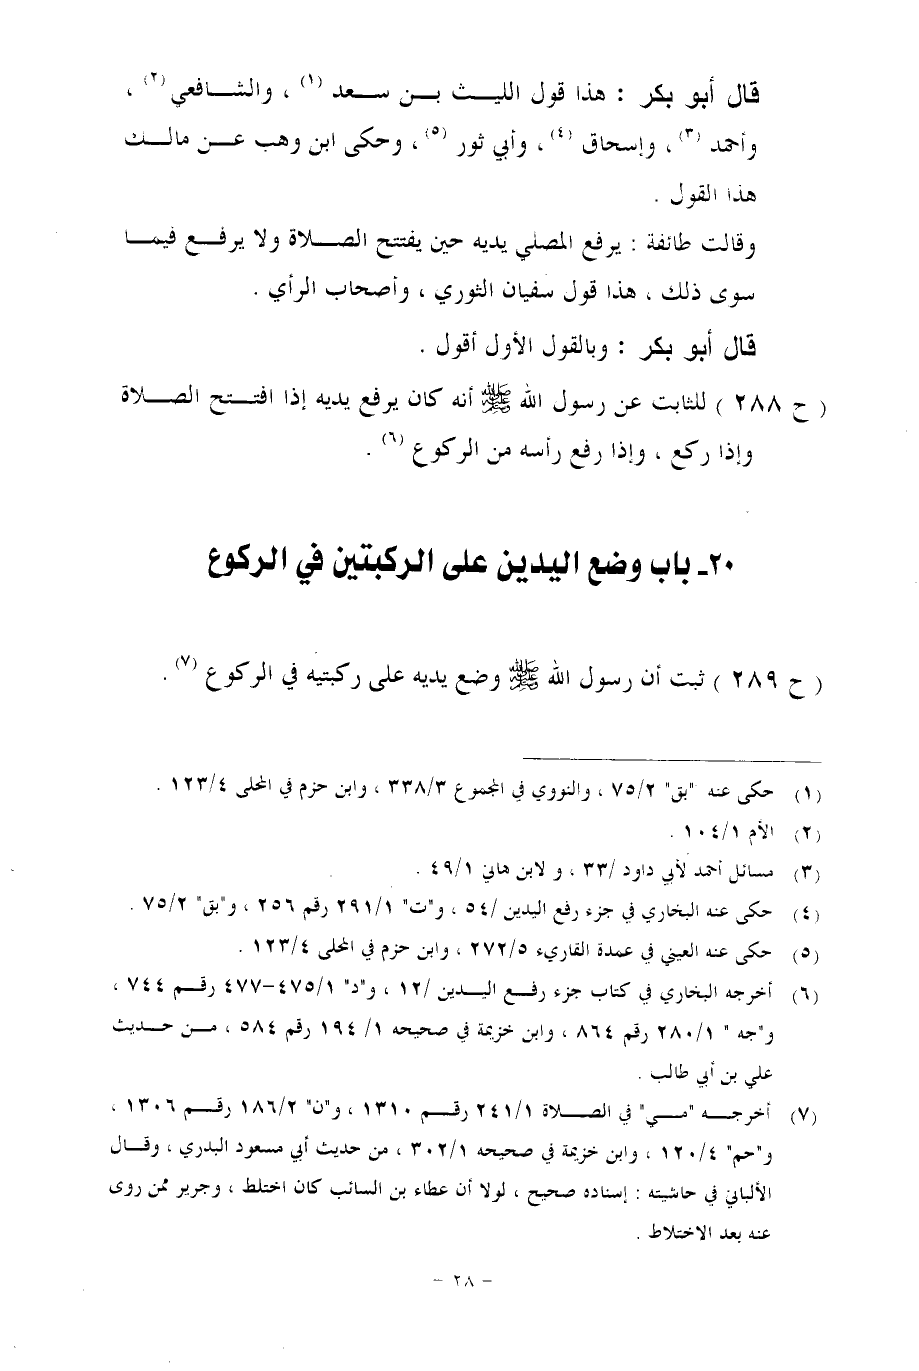 قال أبو بكر : هذا قول الليث بن سعد (١) ، والشافعي (٢) ،
وأحمد (٣) ، وإسحاق (٤) ، وأبي ثور (٥) ، وحكى ابن وهب عن مالك
هذا القول .
وقالت طائفة : يرفع المصلي يديه حين يفتتح الصلاة ولا يرفع فيما
سوى ذلك ، هذا قول سفيان الثوري ، وأصحاب الرأي .
قال أبو بكر : وبالقول الأول أقول .
( ح ٢٨٨ ) للثابت عن رسول الله ﷺ أنه كان يرفع يديه إذا افتتح الصلاة
وإذا ركع ، وإذا رفع رأسه من الركوع (٦) .
٢٠ـ باب وضع اليدين على الركبتين في الركوع
( ح ٢٨٩ ) ثبت أن رسول الله ﷺ وضع يديه على ركبتيه في الركوع (٧) .
(١) حكى عنه "بق" ٧٥/٢ ، والنووي في المجموع ٣٣٨/٣ ، وابن حزم في المحلى ١٢٣/٤ .
(٢) الأم ١٠٤/١ .
(٣) مسائل أحمد لأبي داود /٣٣ ، و لابن هاني ٤٩/١ .
(٤) حكى عنه البخاري في جزء رفع اليدين /٥٤ ، و"ت" ٢٩١/١ رقم ٢٥٦ ، و"بق" ٧٥/٢ .
(٥) حكى عنه العيني في عمدة القاريء ٢٧٢/٥ ، وابن حزم في المحلى ١٢٣/٤ .
(٦) أخرجه البخاري في كتاب جزء رفع اليدين /١٢ ، و"د" ٤٧٥/١-٤٧٧ رقم ٧٤٤ ،
و"جه " ٢٨٠/١ رقم ٨٦٤ ، وابن خزيمة في صحيحه ١/ ١٩٤ رقم ٥٨٤ ، من حديث
علي بن أبي طالب .
(٧) أخرجه "مي" في الصلاة ٢٤١/١ رقم ١٣١٠ ، و"ن" ١٨٦/٢ رقم ١٣٠٦ ،
و"حم" ١٢٠/٤ ، وابن خزيمة في صحيحه ٣٠٢/١ ، من حديث أبي مسعود البدري ، وقال
الألباني في حاشيته : إسناده صحيح ، لولا أن عطاء بن السائب كان اختلط ، وجرير ممن روى
عنه بعد الاختلاط .
- ٢٨ -